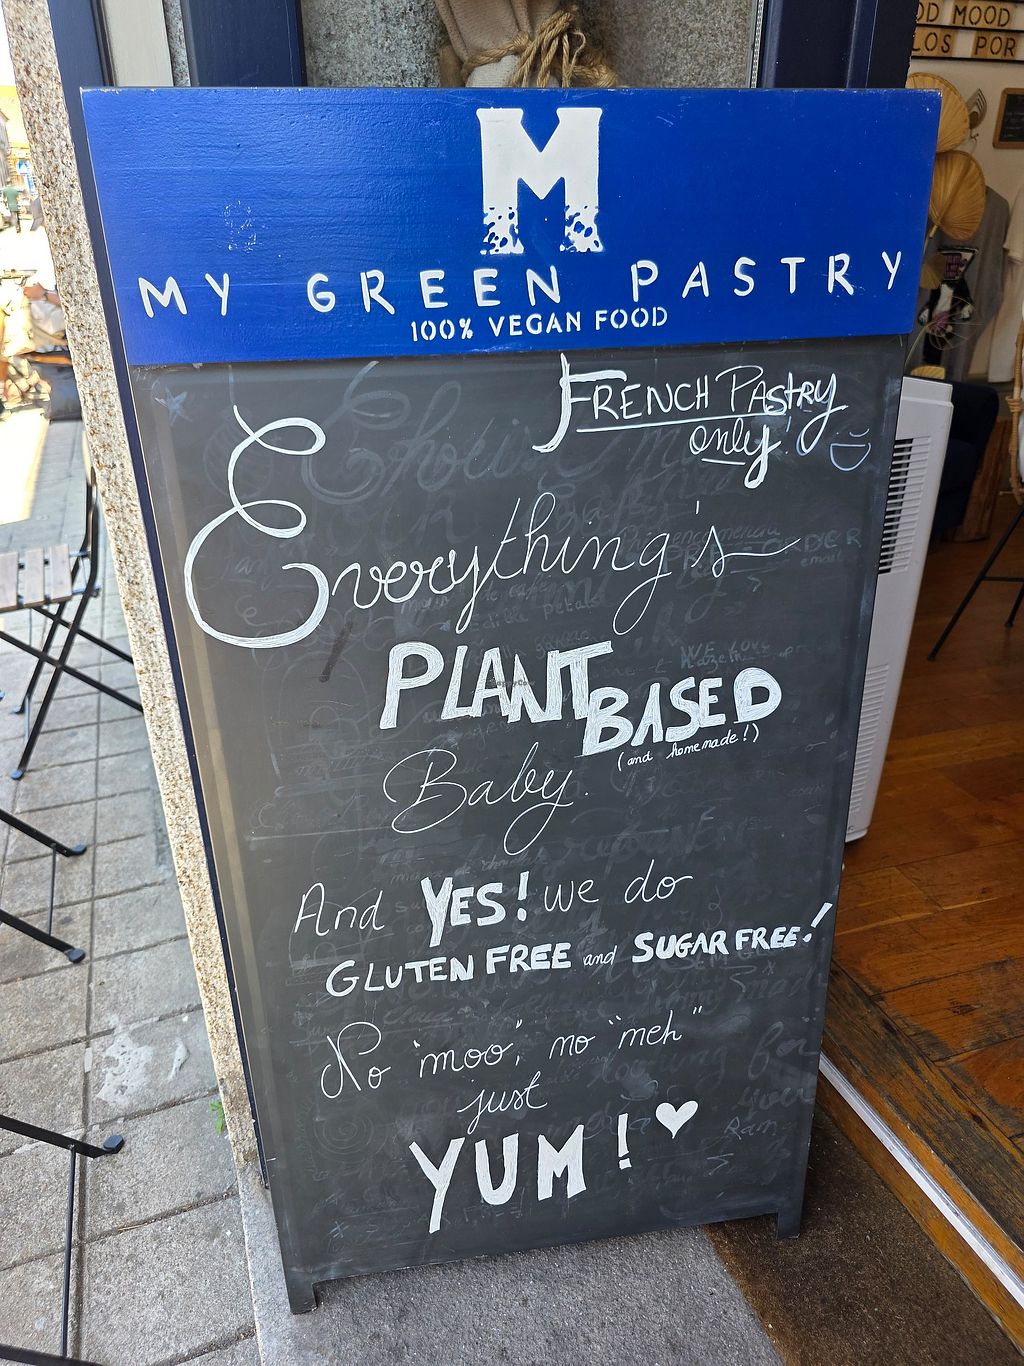 OD MOOD
LOS POR
M
MY GREEN PASTRY
100% VEGAN FOOD
FRENCH PAStRY
only!
Everything's
PLANT
BASED
(and homemade!)
Baby.
And YES! we do
GLUTEN FREE and SUGAR FREE!
No "moo", no "meh"
just
YUM! ♥